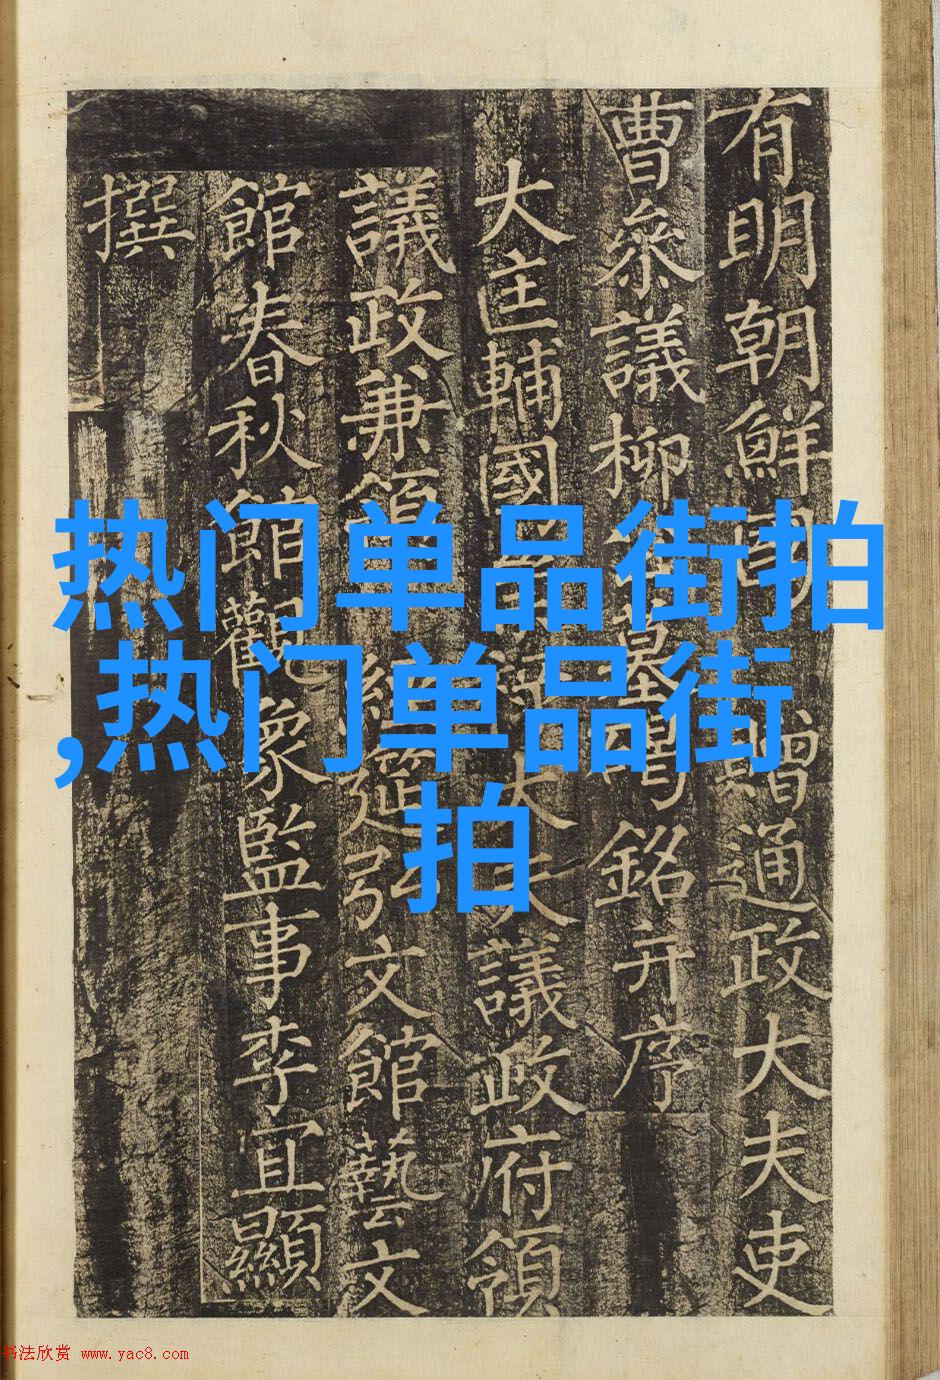 有明朝鮮國 贈通政大夫吏
曹參議柳墓碣銘并序
大匡輔國崇祿大夫議政府領
議政兼領 經筵弘文館藝文
館春秋館觀象監事李宜顯
撰
热门单品街拍
,热门单品街
拍
书法欣赏 www.yac8.com